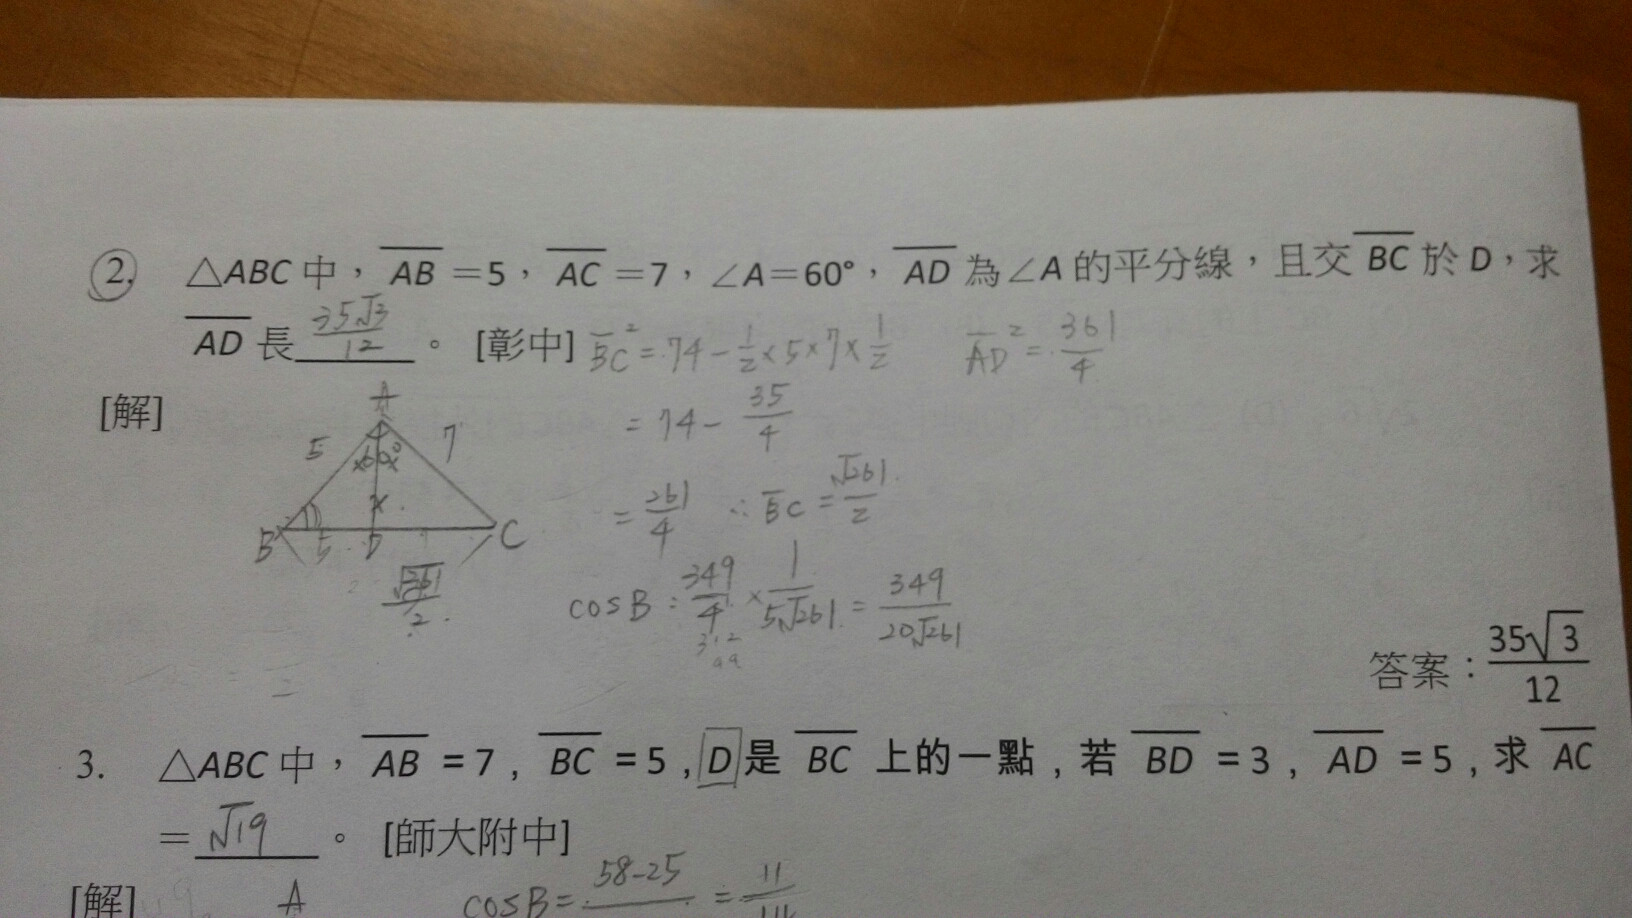 2. △ABC 中，AB＝5，AC＝7，∠A＝60°，AD 為∠A 的平分線，且交 BC 於 D，求
AD 長 35√3/12 。 [彰中] BC² = 74 - 1/2 × 5 × 7 × 1/2 AD² = 361/4
[解]
A
5 7
60°
x
B 5 D C
√261/2
= 74 - 35/4
= 261/4 ∴ BC = √261/2
cosB = 349/4 × 1/5√261 = 349/20√261
答案：35√3/12
3. △ABC 中，AB = 7 , BC = 5 , D 是 BC 上的一點 , 若 BD = 3 , AD = 5 , 求 AC
＝ √19 。 [師大附中]
[解] A cosB = 58-25 = 11